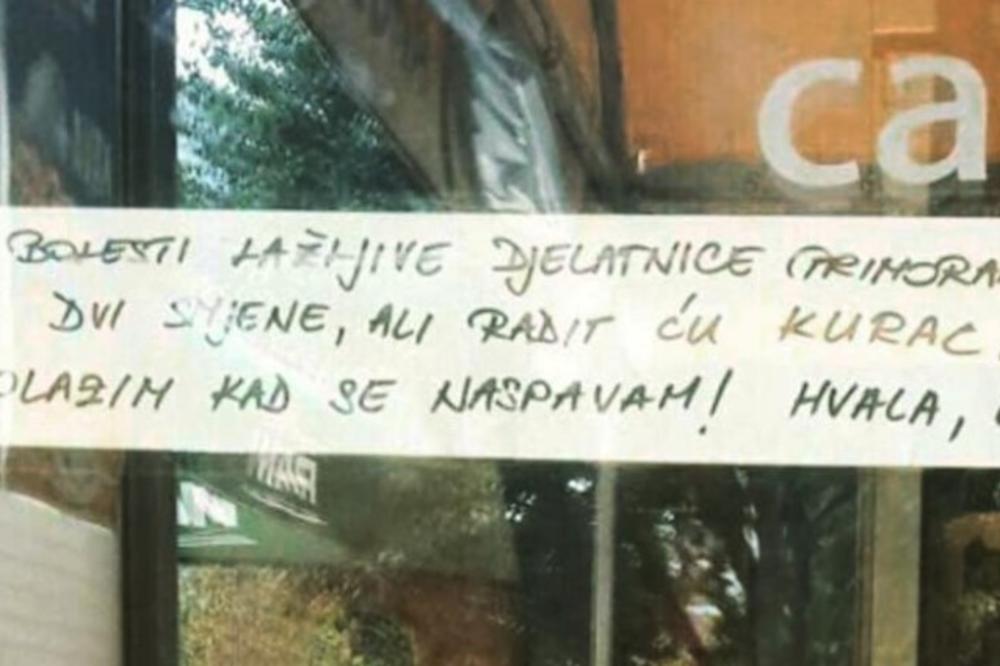 ca
BOLESTI LAŽLJIVE DJELATNICE PRIMORA
DVI SMJENE, ALI RADIT ĆU KURAC
OLAZIM KAD SE NASPAVAM! HVALA,